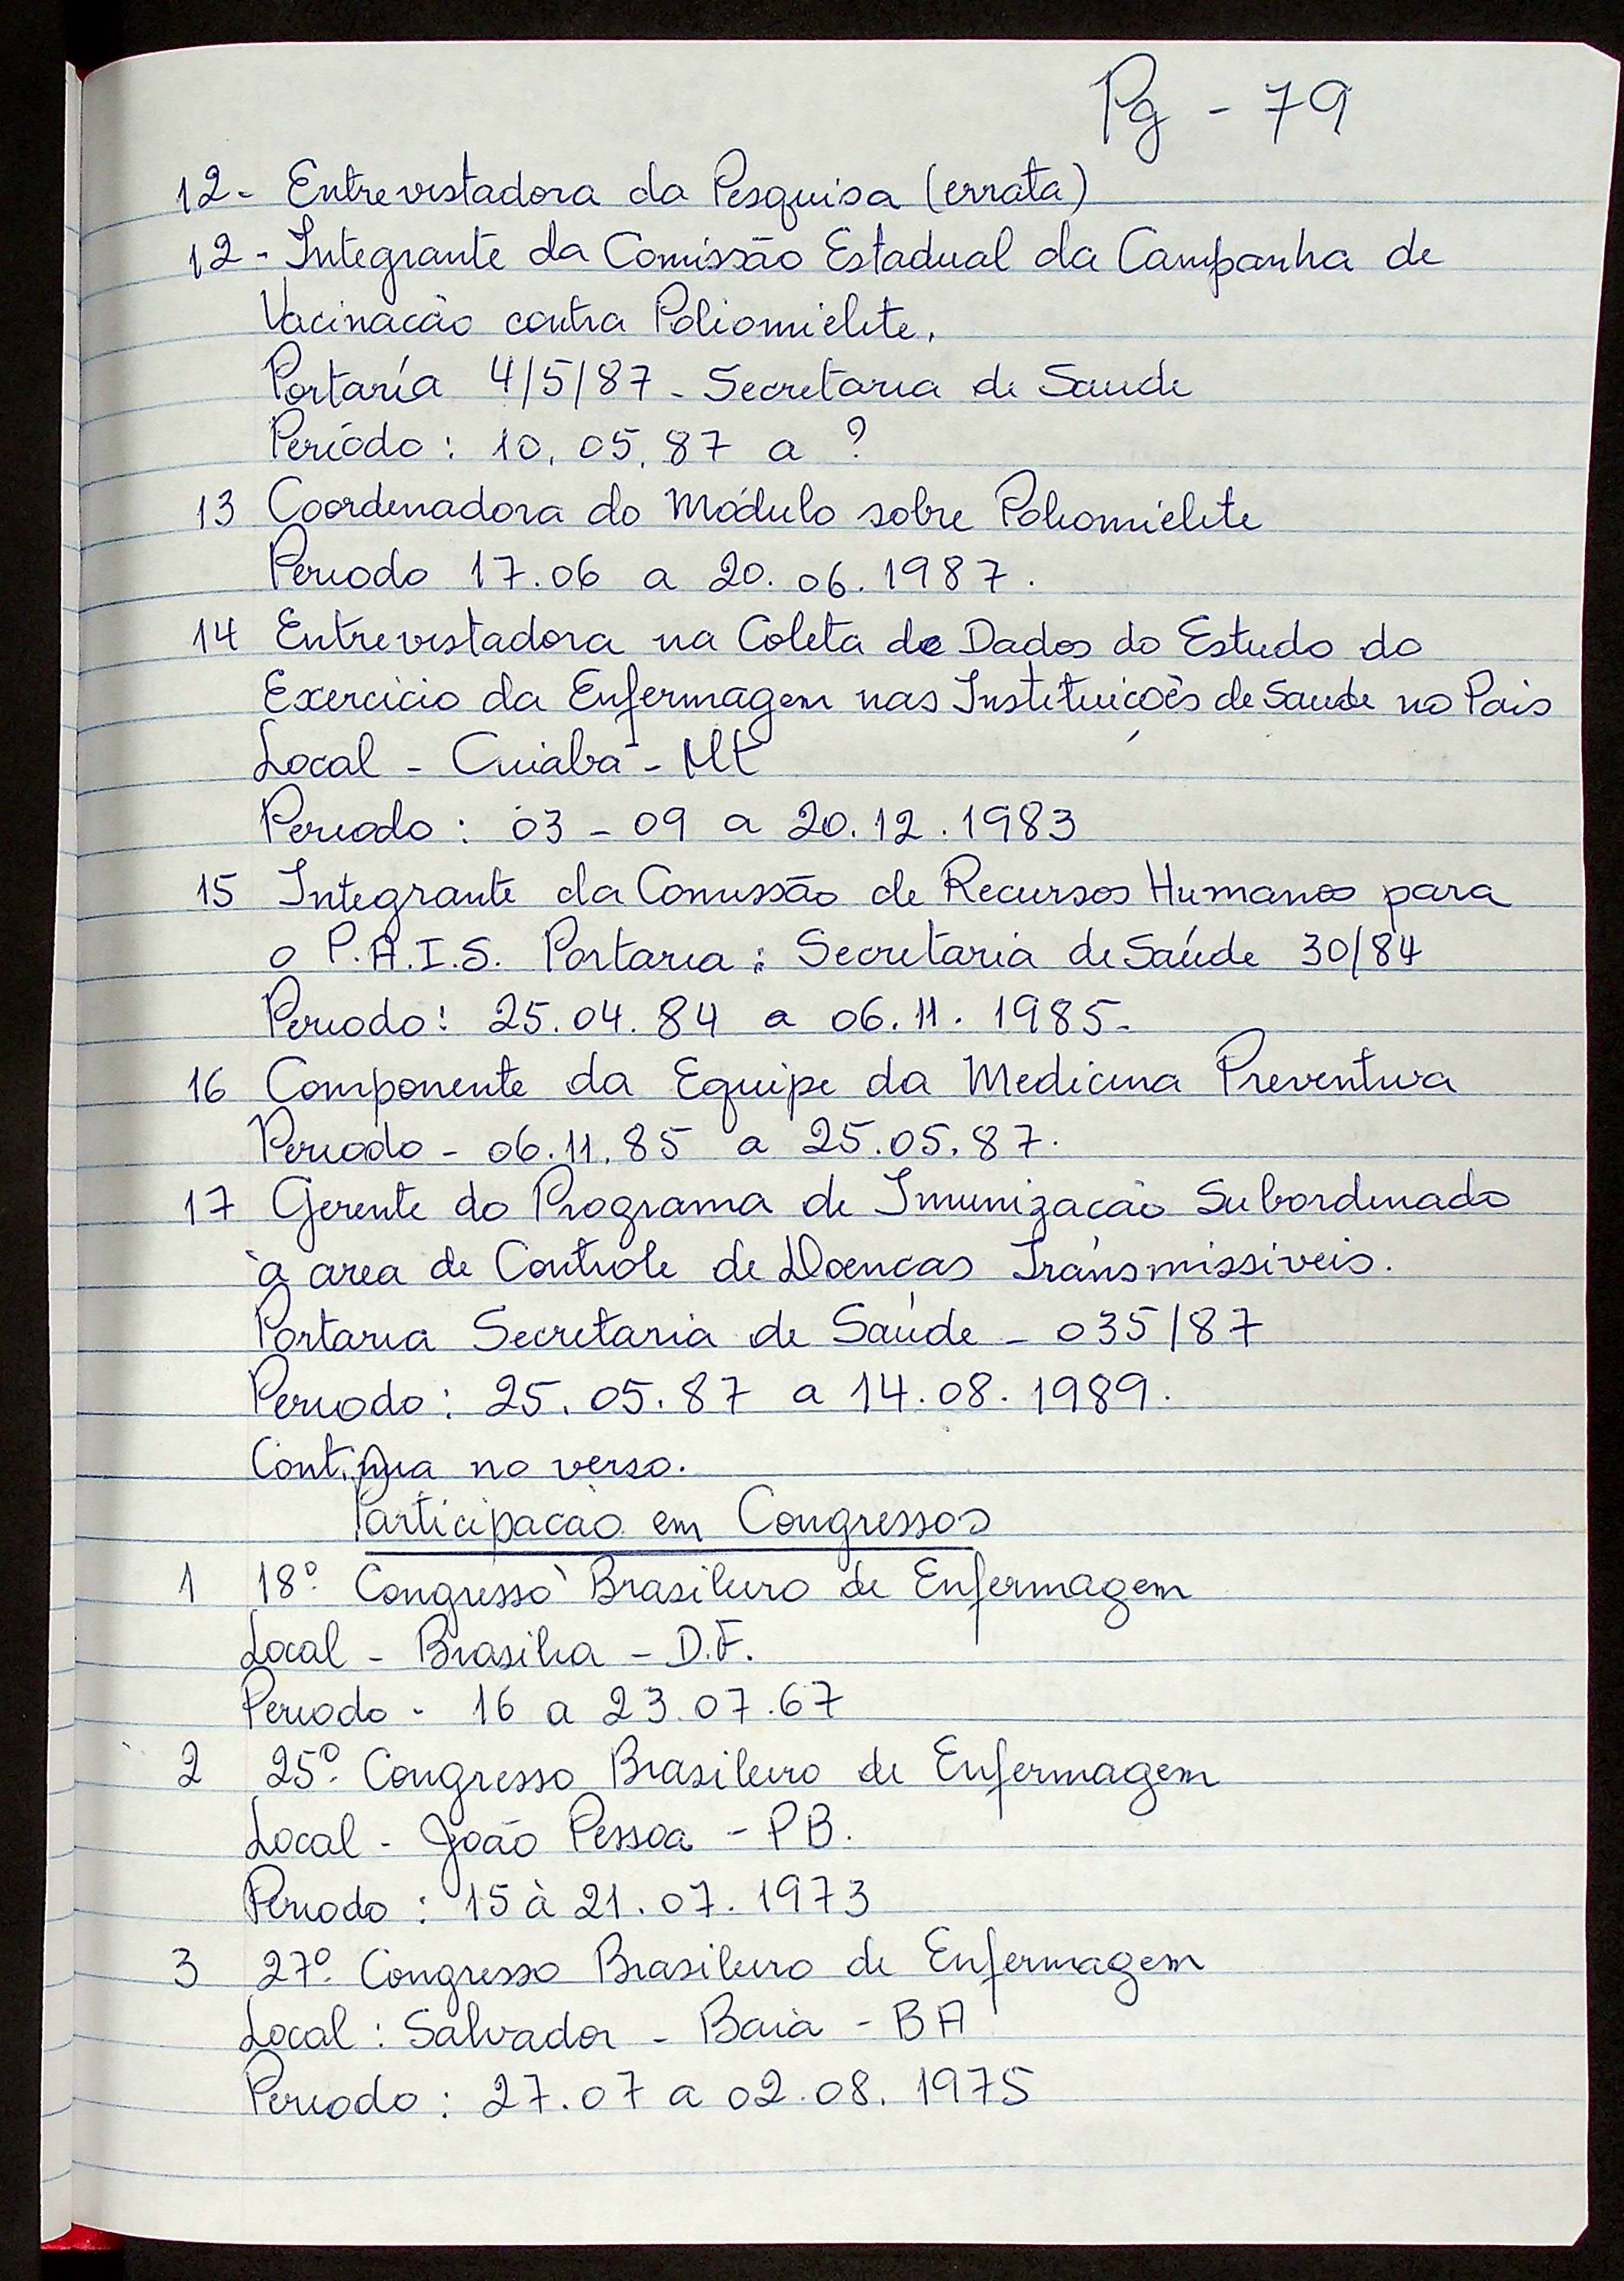 Pg - 79
12- Entrevistadora da Pesquisa (errata)
12- Integrante da Comissão Estadual da Campanha de
Vacinacão contra Poliomielite.
Portaría 4/5/87 - Secretaria de Saude
Período : 10.05.87 a ?
13 Coordenadora do Módulo sobre Poliomielite
Periodo 17.06 a 20.06.1987.
14 Entrevistadora na Coleta de Dados do Estudo do
Exercicio da Enfermagem nas Instituições de Saude no Pais
Local - Cuiabá - Mt
Periodo : 03 - 09 a 20.12.1983
15 Integrante da Comissão de Recursos Humanos para
o P.A.I.S. Portaria : Secretaria de Saúde 30/84
Periodo : 25.04.84 a 06.11.1985-
16 Componente da Equipe da Medicina Preventiva
Periodo - 06.11.85 a 25.05.87.
17 Gerente do Programa de Imunizacão Subordinado
à area de Controle de Doenças Transmissiveis.
Portaria Secretaria de Saúde - 035/87
Periodo : 25.05.87 a 14.08.1989.
Continua no verso.
Participacão em Congressos
1 18º Congresso Brasileiro de Enfermagem
Local - Brasilia - D.F.
Periodo - 16 a 23.07.67
2 25º Congresso Brasileiro de Enfermagem
Local - João Pessoa - PB.
Periodo : 15 à 21.07.1973
3 27º Congresso Brasileiro de Enfermagem
Local : Salvador - Baia - BA
Periodo : 27.07 a 02.08.1975